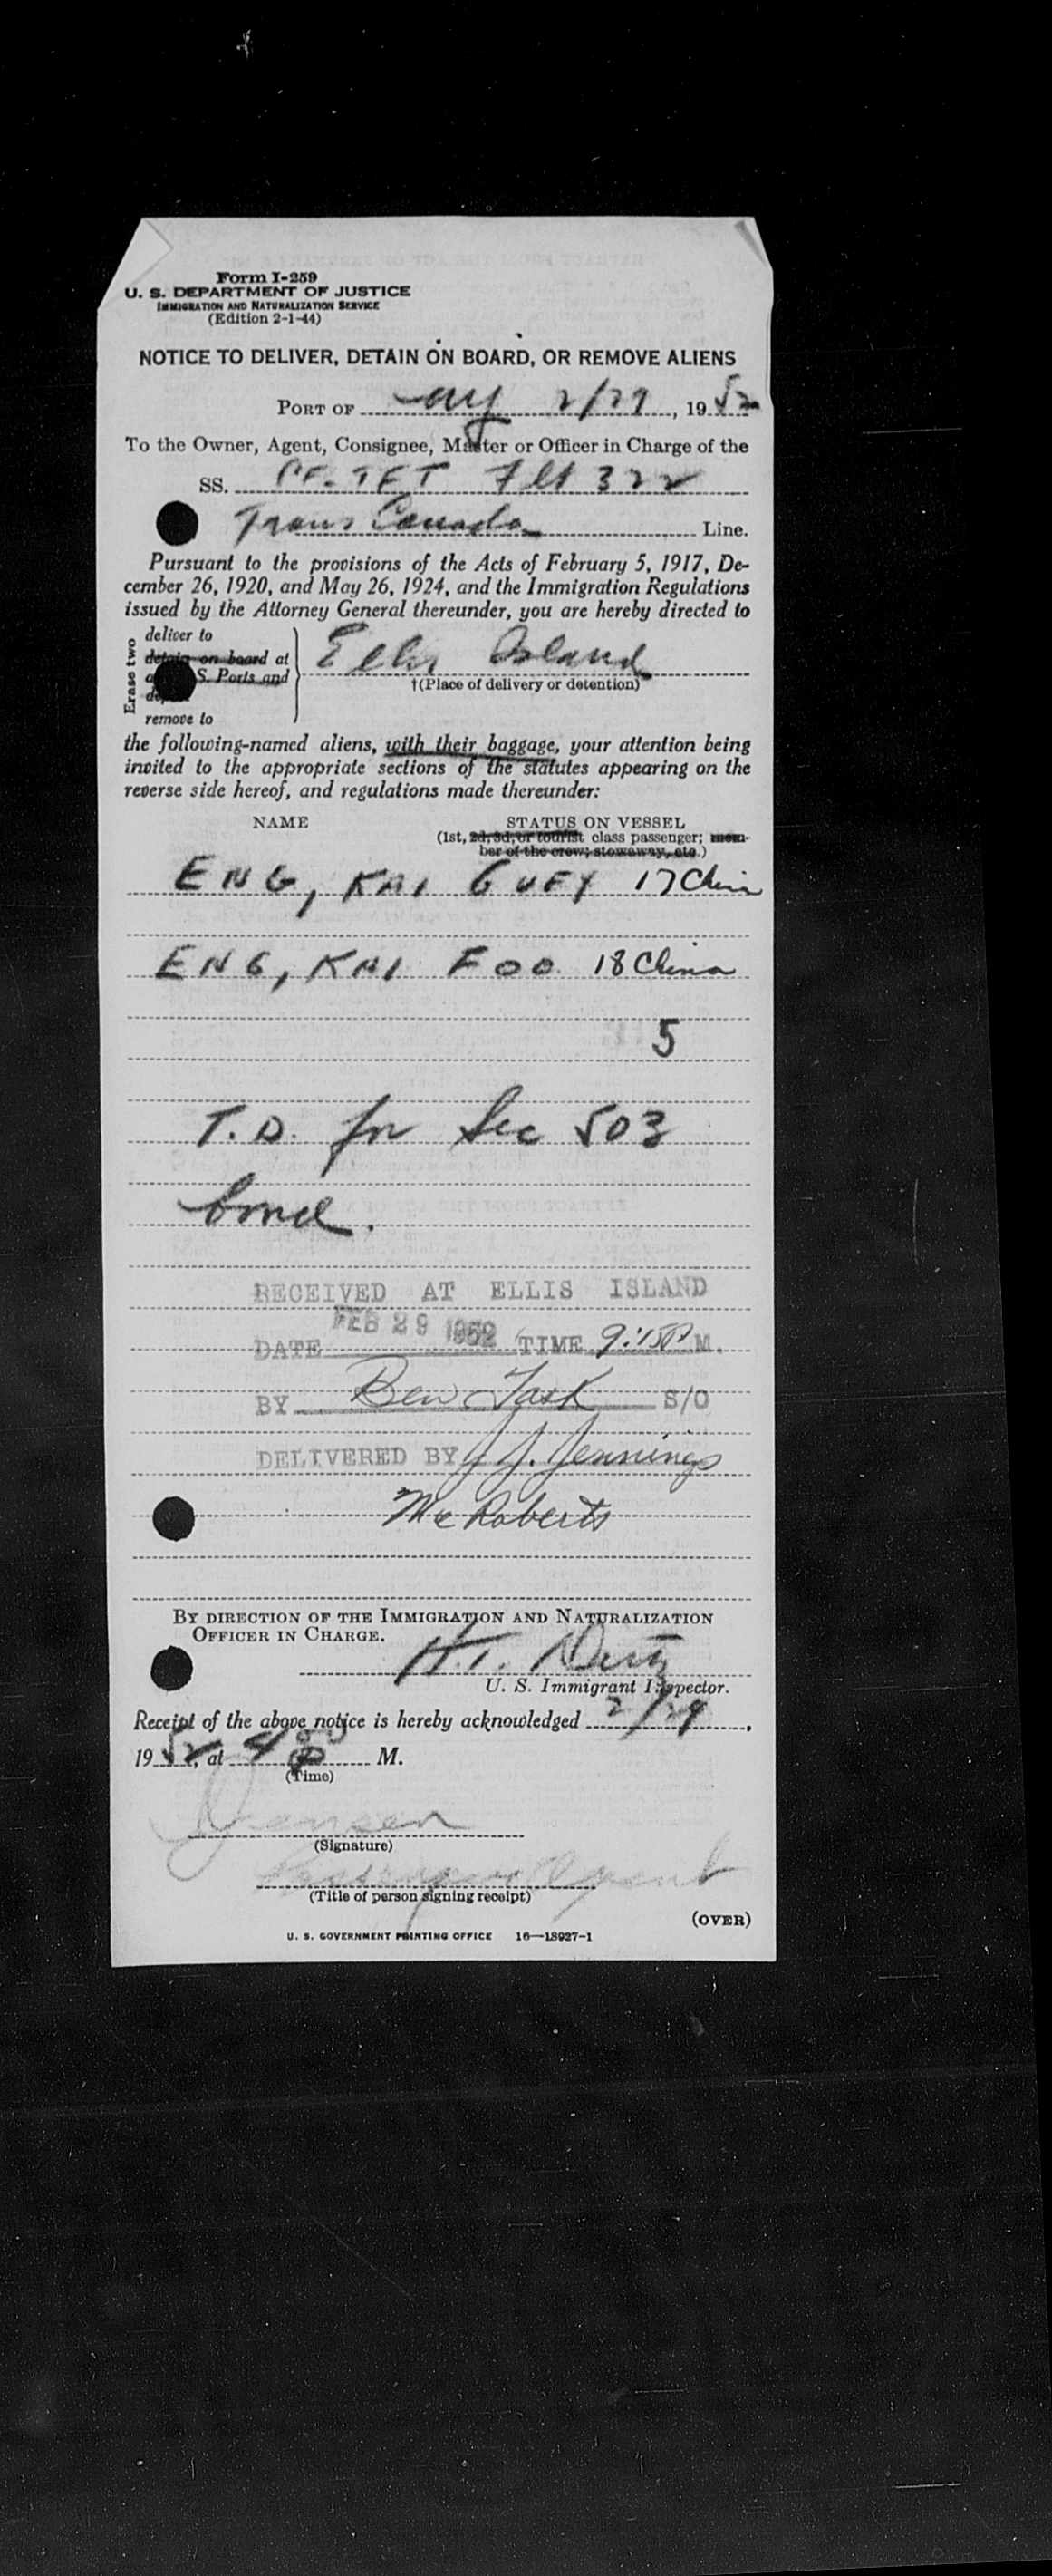 Form I-259
U. S. DEPARTMENT OF JUSTICE
IMMIGRATION AND NATURALIZATION SERVICE
(Edition 2-1-44)
NOTICE TO DELIVER, DETAIN ON BOARD, OR REMOVE ALIENS
PORT OF NY 2/29, 1952
To the Owner, Agent, Consignee, Master or Officer in Charge of the
SS. CF-TFT Flt 322
Trans Canada Line.
Pursuant to the provisions of the Acts of February 5, 1917, De-
cember 26, 1920, and May 26, 1924, and the Immigration Regulations
issued by the Attorney General thereunder, you are hereby directed to
Erase two
deliver to
detain on board at
S. Ports and
remove to
Ellis Island
†(Place of delivery or detention)
the following-named aliens, with their baggage, your attention being
invited to the appropriate sections of the statutes appearing on the
reverse side hereof, and regulations made thereunder:
NAME STATUS ON VESSEL
(1st, 2d, 3d, or tourist class passenger; mem-
ber of the crew; stowaway, etc.)
ENG, KAI GUEY 17 China
ENG, KAI FOO 18 China
5
T.D. for Sec 503
bond.
RECEIVED AT ELLIS ISLAND
DATE FEB 29 1952 TIME 9:15 P M.
BY Ben Task S/O
DELIVERED BY J J. Jennings
McRoberts
BY DIRECTION OF THE IMMIGRATION AND NATURALIZATION
OFFICER IN CHARGE.
U. S. Immigrant Inspector.
Receipt of the above notice is hereby acknowledged 2/29,
1952, at M.
(Time)
Jensen
(Signature)
Passenger Agent
(Title of person signing receipt)
(OVER)
U. S. GOVERNMENT PRINTING OFFICE 16—18927-1